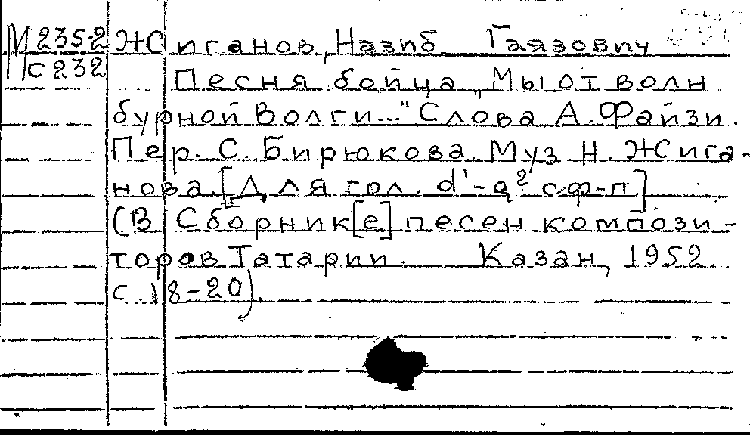 М 235-2 Жиганов, Назиб Гаязович
с 232 Песня бойца „Мы от волн
бурной Волги..." Слова А. Файзи.
Пер. С. Бирюкова. Муз Н. Жига-
нова. [Для гол. d'-g² с ф-п]
(В Сборник[е] песен компози-
торов Татарии. Казан, 1952
с. 18-20).